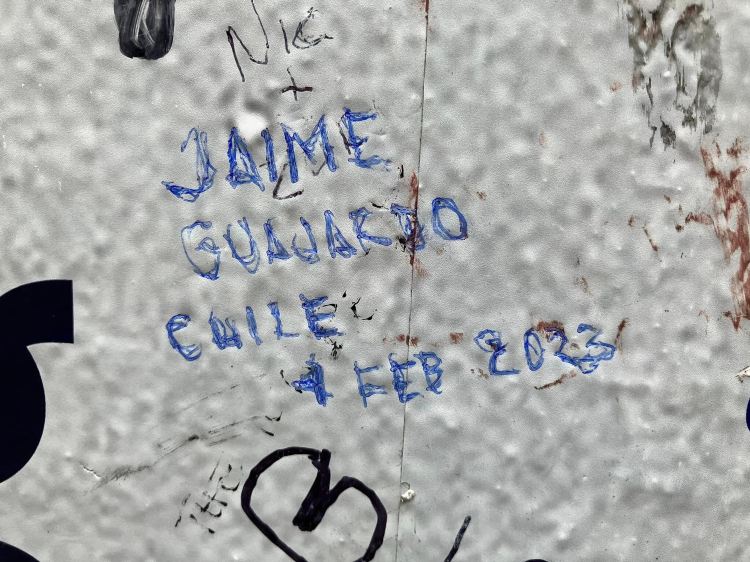 NIC
+
JAIME
GUAJARDO
CHILE
4 FEB 2023